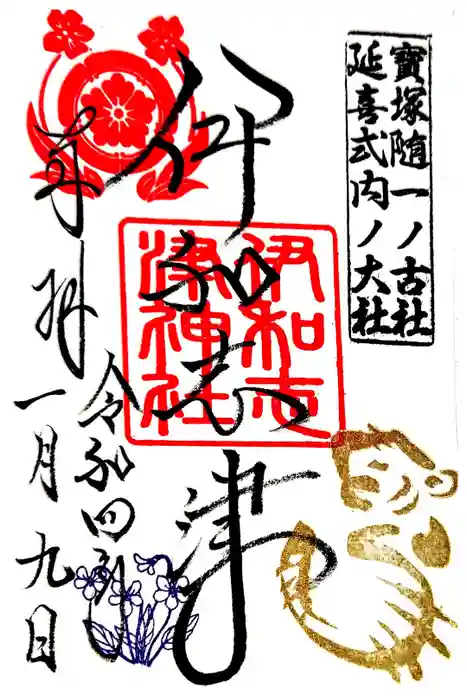 寶塚随一ノ古社
延喜式内ノ大社
伊和志津
伊和志
津神社
奉拝
令和四年
一月九日